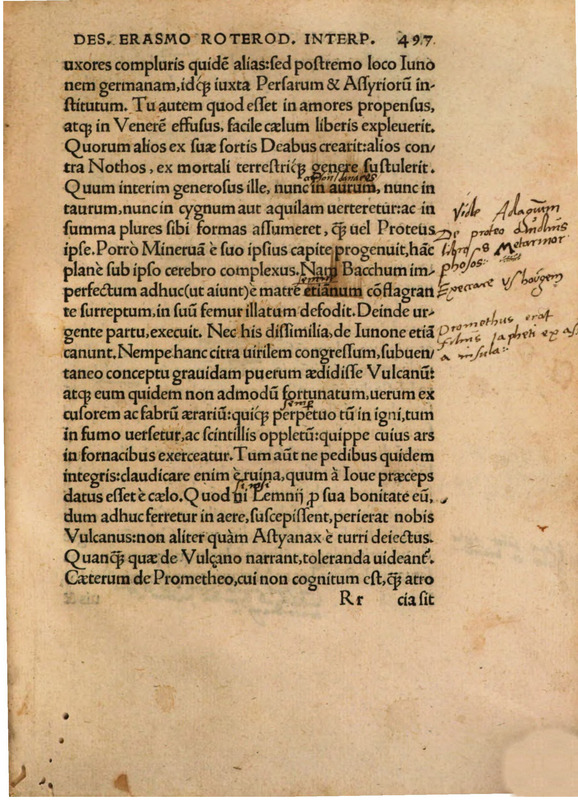 DES. ERASMO ROTEROD. INTERP. 497
uxores compluris quidē alias: sed postremo loco Iuno
nem germanam, idq́; iuxta Persarum & Assyriorū in-
stitutum. Tu autem quod esset in amores propensus,
atq; in Venerē effusus, facile cælum liberis expleuerit.
Quorum alios ex suæ sortis Deabus crearit: alios con-
tra Nothos, ex mortali terrestriq́; genere sustulerit.
Quum interim generosus ille, nunc in aurum, nunc in
taurum, nunc in cygnum aut aquilam uerteretur: ac in
summa plures sibi formas assumeret, q̃; uel Proteus
ipse. Porrò Mineruā è suo ipsius capite progenuit, hāc
planè sub ipso cerebro complexus. Nam Bacchum im-
perfectum adhuc (ut aiunt) è matre etiānum cōflagran
te surreptum, in suū femur illatum defodit. Deinde ur-
gente partu, execuit. Nec his dissimilia, de Iunone etiā
canunt. Nempe hanc citra uirilem congressum, subuen
taneo conceptu grauidam puerum ædidisse Vulcanū:
atq; eum quidem non admodū fortunatum, uerum ex
cusorem ac fabrū ærariū: quiq́; perpetuo tū in igni, tum
in fumo uersetur, ac scintillis oppletū: quippe cuius ars
in fornacibus exerceatur. Tum aūt ne pedibus quidem
integris: claudicare enim è ruina, quum à Ioue præceps
datus esset è cælo. Quod ni Lemnij ꝓ sua bonitate eū,
dum adhuc ferretur in aere, suscepissent, perierat nobis
Vulcanus: non aliter quàm Astyanax è turri deiectus.
Quanq̃; quæ de Vulcano narrant, toleranda uideant᷑.
Cæterum de Prometheo, cui non cognitum est, q̃; atro
Rr cia sit
Vide Adagium
De proteo Ouidius
libro 8 Metamor
phosos:
Promothus erat
filius Iapheti ex as
a insula: